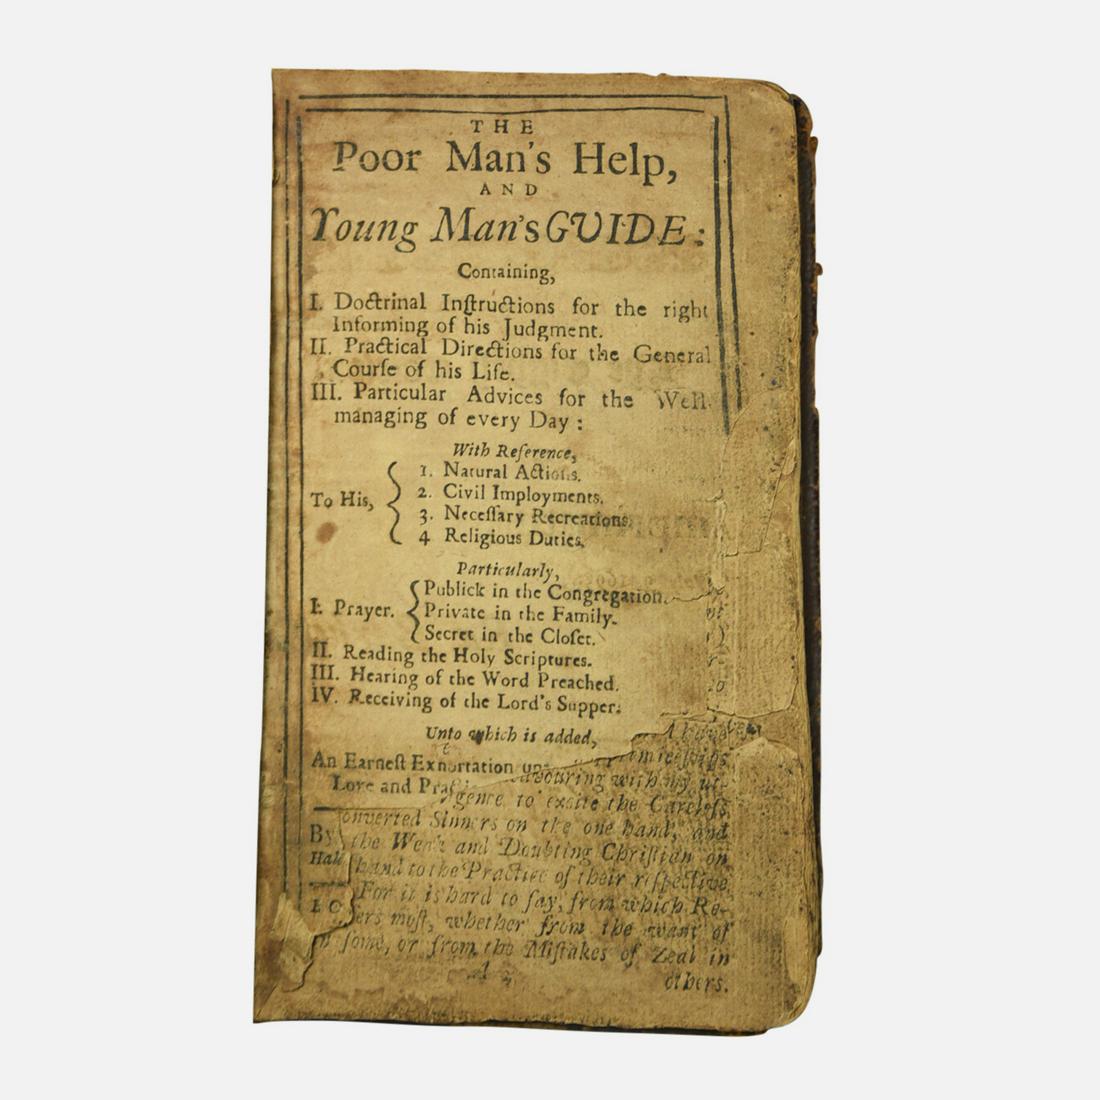 THE
Poor Man's Help,
AND
Young Man's GUIDE:
Containing,
I. Doctrinal Inſtructions for the right
Informing of his Judgment.
II. Practical Directions for the General
Courſe of his Life.
III. Particular Advices for the Well-
managing of every Day:
With Reference,
To His,
1. Natural Actions.
2. Civil Imployments.
3. Neceſſary Recreations.
4 Religious Duties.
Particularly,
I. Prayer.
Publick in the Congregation.
Private in the Family.
Secret in the Cloſet.
II. Reading the Holy Scriptures.
III. Hearing of the Word Preached.
IV. Receiving of the Lord's Supper.
Unto which is added,
An Earneſt Exhortation
Love and
with my
to excite the Careleſs,
Sinners on the one hand, and
By the Weak and Doubting Chriſtian on
hand to the Practice of their reſpective
For it is hard to ſay, from which Re-
moſt, whether from the want of
in ſome, or from the Miſtakes of Zeal in
others.